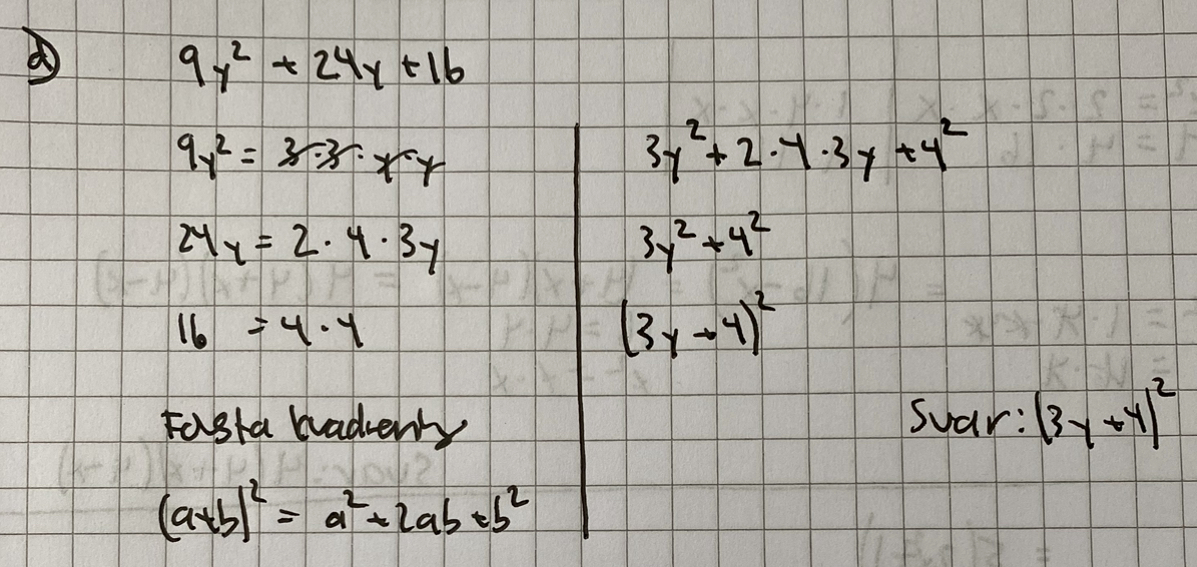 d) 9y² + 24y + 16
9y² = 3·3·y·y
24y = 2·4·3y
16 = 4·4
(a+b)² = a² + 2ab + b²
3y² + 2·4·3y + 4²
3y² + 4²
(3y + 4)²
Svar: (3y + 4)²